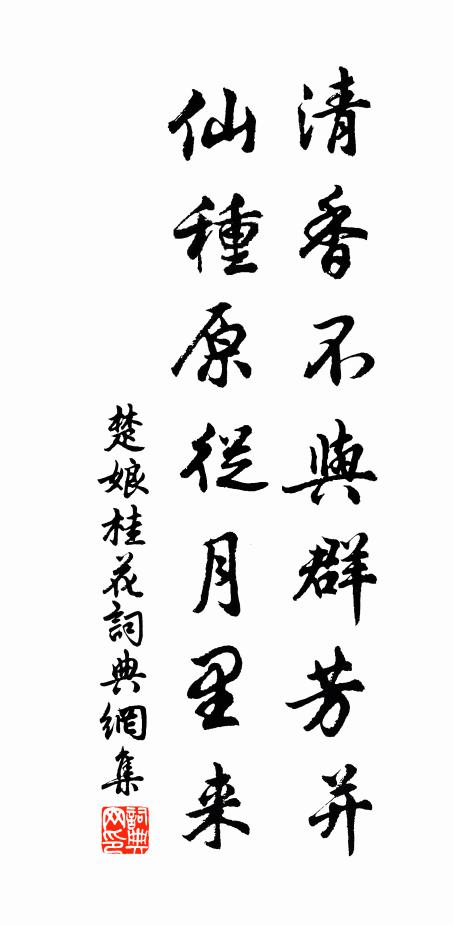 清香不與群芳并
仙種原從月里来
楚娘桂花詞典網集
詞典网印